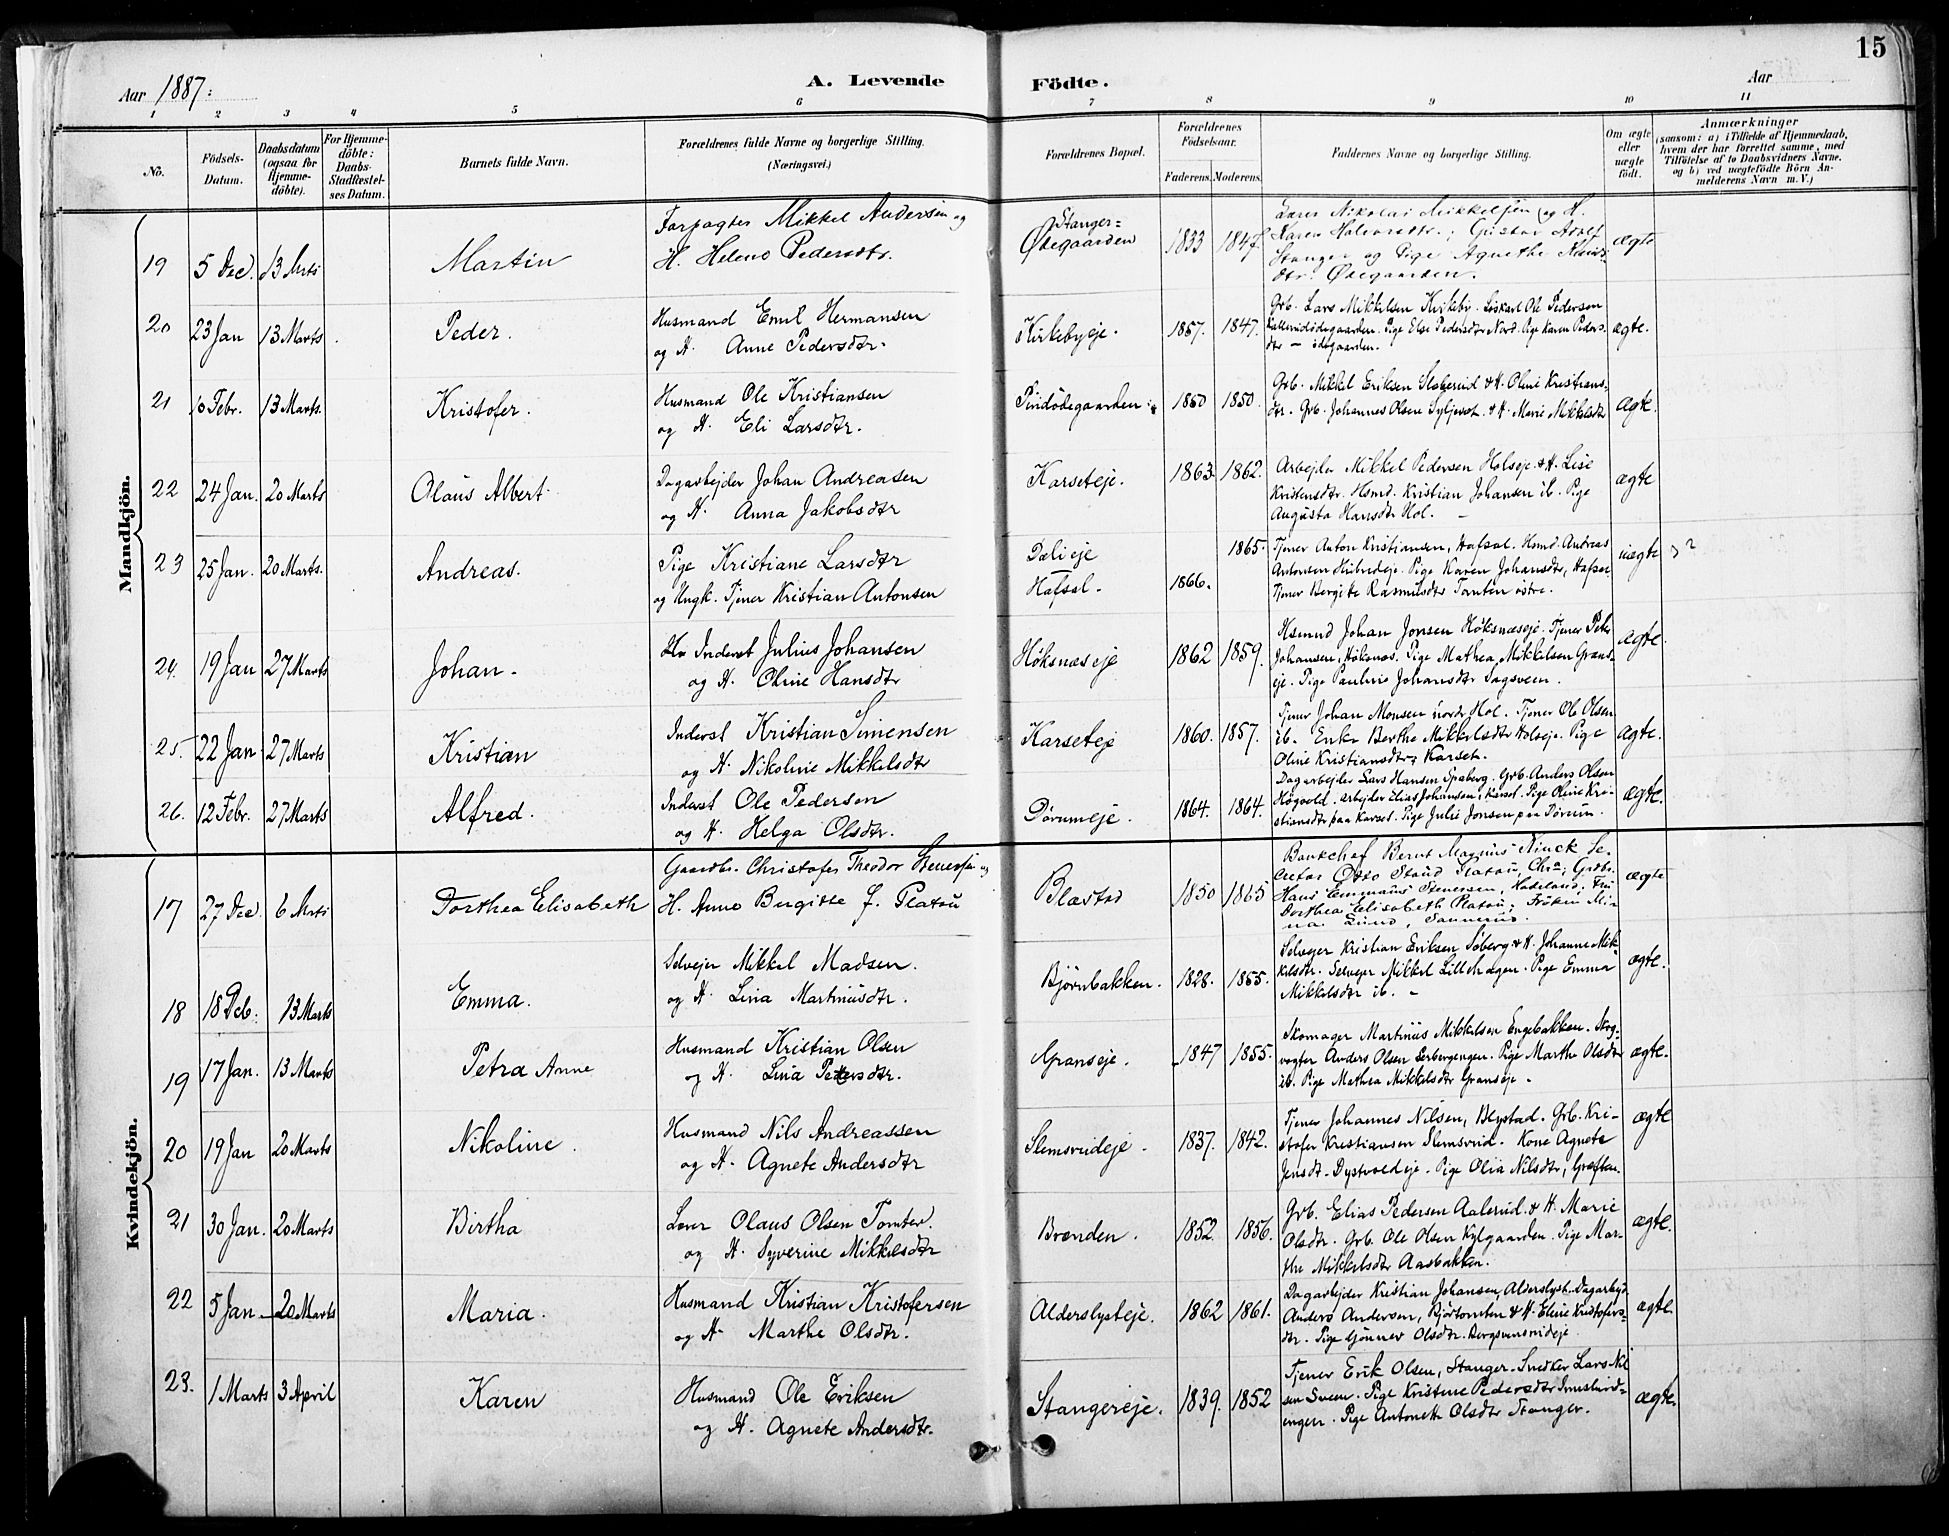 15
Aar 1887:
A. Levende Födte.
Aar
1 2 3 4 5 6 7 8 9 10 11
No.
Födsels-Datum.
Daabsdatum (ogsaa for Hjemme-döbte).
For Hjemme-döbte: Daabs-Stadfæstel-ses Datum.
Barnets fulde Navn.
Forældrenes fulde Navne og borgerlige Stilling. (Næringsvei.)
Forældrenes Bopæl.
Forældrenes Födselsaar.
Faderens. Moderens.
Faddernes Navne og borgerlige Stilling.
Om ægte eller uægte födt.
Anmærkninger
(saasom: a) i Tilfælde af Hjemmedaab,
hvem der har forrettet samme, med
Tilföielse af to Daabsvidners Navne.
og b) ved uægtefödte Börn An-
melderens Navn m. V.)
Mandkjön.
19 5 Dec. 13 Mrts Martin Forpagter Mikkel Andersen og
H. Helene Pedersdtr. Stanger= Ødegaarden 1833 1847 ægte
Lærer Nikolai Mikkelsen og H.
Karen Halvorsdtr.; Gustav Adolf
Stanger og Pige Agnethe
dtr. Ødegaarden.
20 23 Jan 13 Marts Peder. Husmand Emil Hermansen
og H. Anne Pedersdtr. Kirkebyeje. 1857. 1847. ægte.
Grb. Lars Mikkelsen Kirkeby. Ole Pedersen
Pige Else Pedersdtr Nord. Pige Karen Peders-
dtr — ödegaarden.
21 10 Febr. 13 Marts. Kristofer. Husmand Ole Kristiansen
og H. Eli Larsdtr. 1850 1850. ægte.
Grb. Mikkel Eriksen & H. Oline Kristians-
dtr. Grb. Johannes Olsen & H. Marie Mikkelsdtr
22 24 Jan. 20 Marts Olaus Albert. Dagarbejder Johan Andreasen
og H. Anna Jakobsdtr Karseteje. 1863. 1862. ægte
Arbejder Mikkel Pedersen Holseje & H. Lise
Kristensdtr. Hsmd. Kristian Johansen ib. Pige
Augusta Hansdtr Hol. —
23 25 Jan. 20 Marts. Andreas. Pige Kristiane Larsdtr
og Ungk. Tjener Kristian Antonsen Dælieje
Hafsal. 1866. 1865. uægte
Tjener Anton Kristiansen, Hafsal. Hsmd. Andreas
Antonsen Pige Karen Johansdtr, Hafsal
Tjener Bergite Rasmusdtr Tomten østre.
24. 19 Jan 27 Marts Johan. Inderst Julius Johansen
og H. Oline Hansdtr Höksnæseje 1862 1859. ægte.
Hsmnd Johan Jonsen Höksnæseje. Tjener Peter
Johansen, Höksnæs. Pige Mathea Mikkelsen Grans-
eje. Pige Pauline Johansdtr Sagsveen.
25. 22 Jan 27 Marts Kristian Inderst Kristian Simensen
og H. Nikoline Mikkelsdtr Karseteje 1860. 1857. ægte.
Tjener Johan Monsen nordr Hol. Tjener Ole Olsen
ib. Enke Berthe Mikkelsdtr Holseje. Pige
Oline Kristiansdtr, Karset.
26. 12 Febr. 27 Marts Alfred. Inderst Ole Pedersen
og H. Helga Olsdtr. Dörumeje. 1864. 1864. ægte.
Dagarbejder Lars Hansen Spaberg. Grb. Anders Olsen
Högvold. Arbejder Elias Johansen, Karset. Pige Oline Kri-
stiansdtr paa Karset. Pige Julie Jonsen paa Dörum.
Kvindekjön.
17 27 Dec. 6 Mrts Dorthea Elisabeth Gaardbr. Christofer Theodor Stenersen og
H. Anne Birgitte f. Platou Blæstad 1850 1865 ægte
Bankchef Bernt Magnus
Otto Platou, Chra; Grdbr.
Hans Emmaus Stenersen, Hadeland, Fru
Dorthea Elisabeth Platou; Fröken Mi-
na Lund, Sannerud.
18 18 Feb. 13 Marts Emma. Selvejer Mikkel Madsen.
og H. Lina Martinusdtr. Björnbakken. 1828. 1855. ægte.
Selvejer Kristian Eriksen Söberg & H. Johanne Mik-
kelsdtr. Selvejer Mikkel Lillehagen. Pige Emma
Mikkelsdtr ib. —
19 17 Jan. 13 Marts Petra Anne Husmand Kristian Olsen
og H. Lina Petersdtr. Granseje. 1847 1855. ægte.
Skomager Martinus Mikkelsen Engebakken. Skog-
vogter Anders Olsen Pige Marthe Olsdtr
ib. Pige Mathea Mikkelsdtr Granseje.
20 19 Jan 20 Marts Nikoline. Husmand Nils Andreassen
og H. Agnete Andersdtr Slemsrudeje. 1837. 1842. ægte
Tjener Johannes Nilsen, Blystad. Grb. Kri-
stofer Kristiansen Slemsrud. Kone Agnete
Jensdt. Dystvoldeje. Pige Olia Nilsdtr, Græften.
21 30 Jan. 20 Marts Birtha Lærer Olaus Olsen Tomter.
og H. Syverine Mikkelsdtr Brænden. 1852. 1856. ægte.
Grb. Elias Pedersen Aalerud. & H. Marie
Olsdtr. Grb. Ole Olsen Kylgaarden. Pige Mar-
the Mikkelsdtr Aasbakken.
22 5 Jan. 20 Marts Maria. Husmand Kristian Kristofersen
og H. Marthe Olsdtr. Alderslysteje. 1862 1861. ægte.
Dagarbejder Kristian Johansen, Alderslyst. Dagarbejd.
Anders Andersen, Björtomten & H. Eline Kristofers-
dtr. Pige Gunner Olsdtr.
23. 1 Marts 3 April Karen Husmand Ole Eriksen
og H. Agnete Andersdtr. Stangereje. 1839. 1852 ægte.
Tjener Erik Olsen, Stanger. Snedker Lars Nil
sen Sveen. Pige Kristine Pedersdtr
engen. Pige Antonette Olsdtr Stanger.